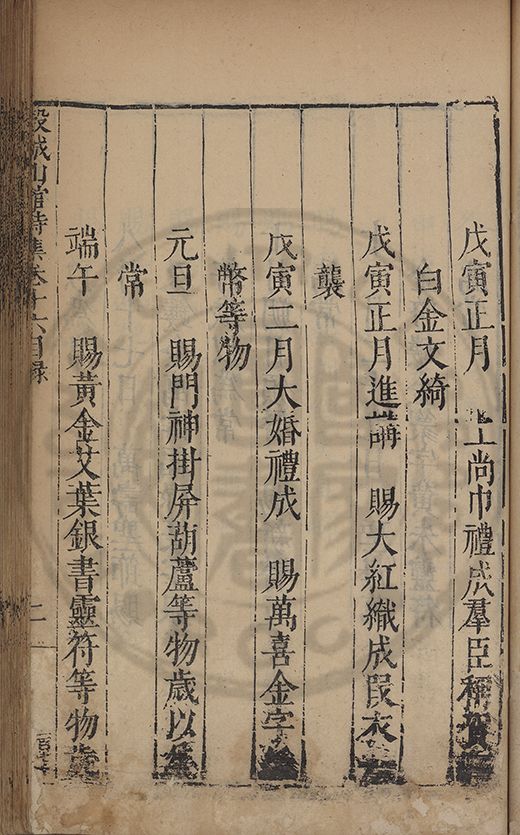 戊寅正月　上尚巾禮成羣臣稱賀
白金文綺
戊寅正月進講　賜大紅織成叚衣
襲
戊寅二月大婚禮成　賜萬喜金字
幣等物
元旦　賜門神掛屏葫蘆等物歲以
常
端午　賜黃金艾葉銀書靈符等物歲
穀城山館詩集卷十六目錄
二